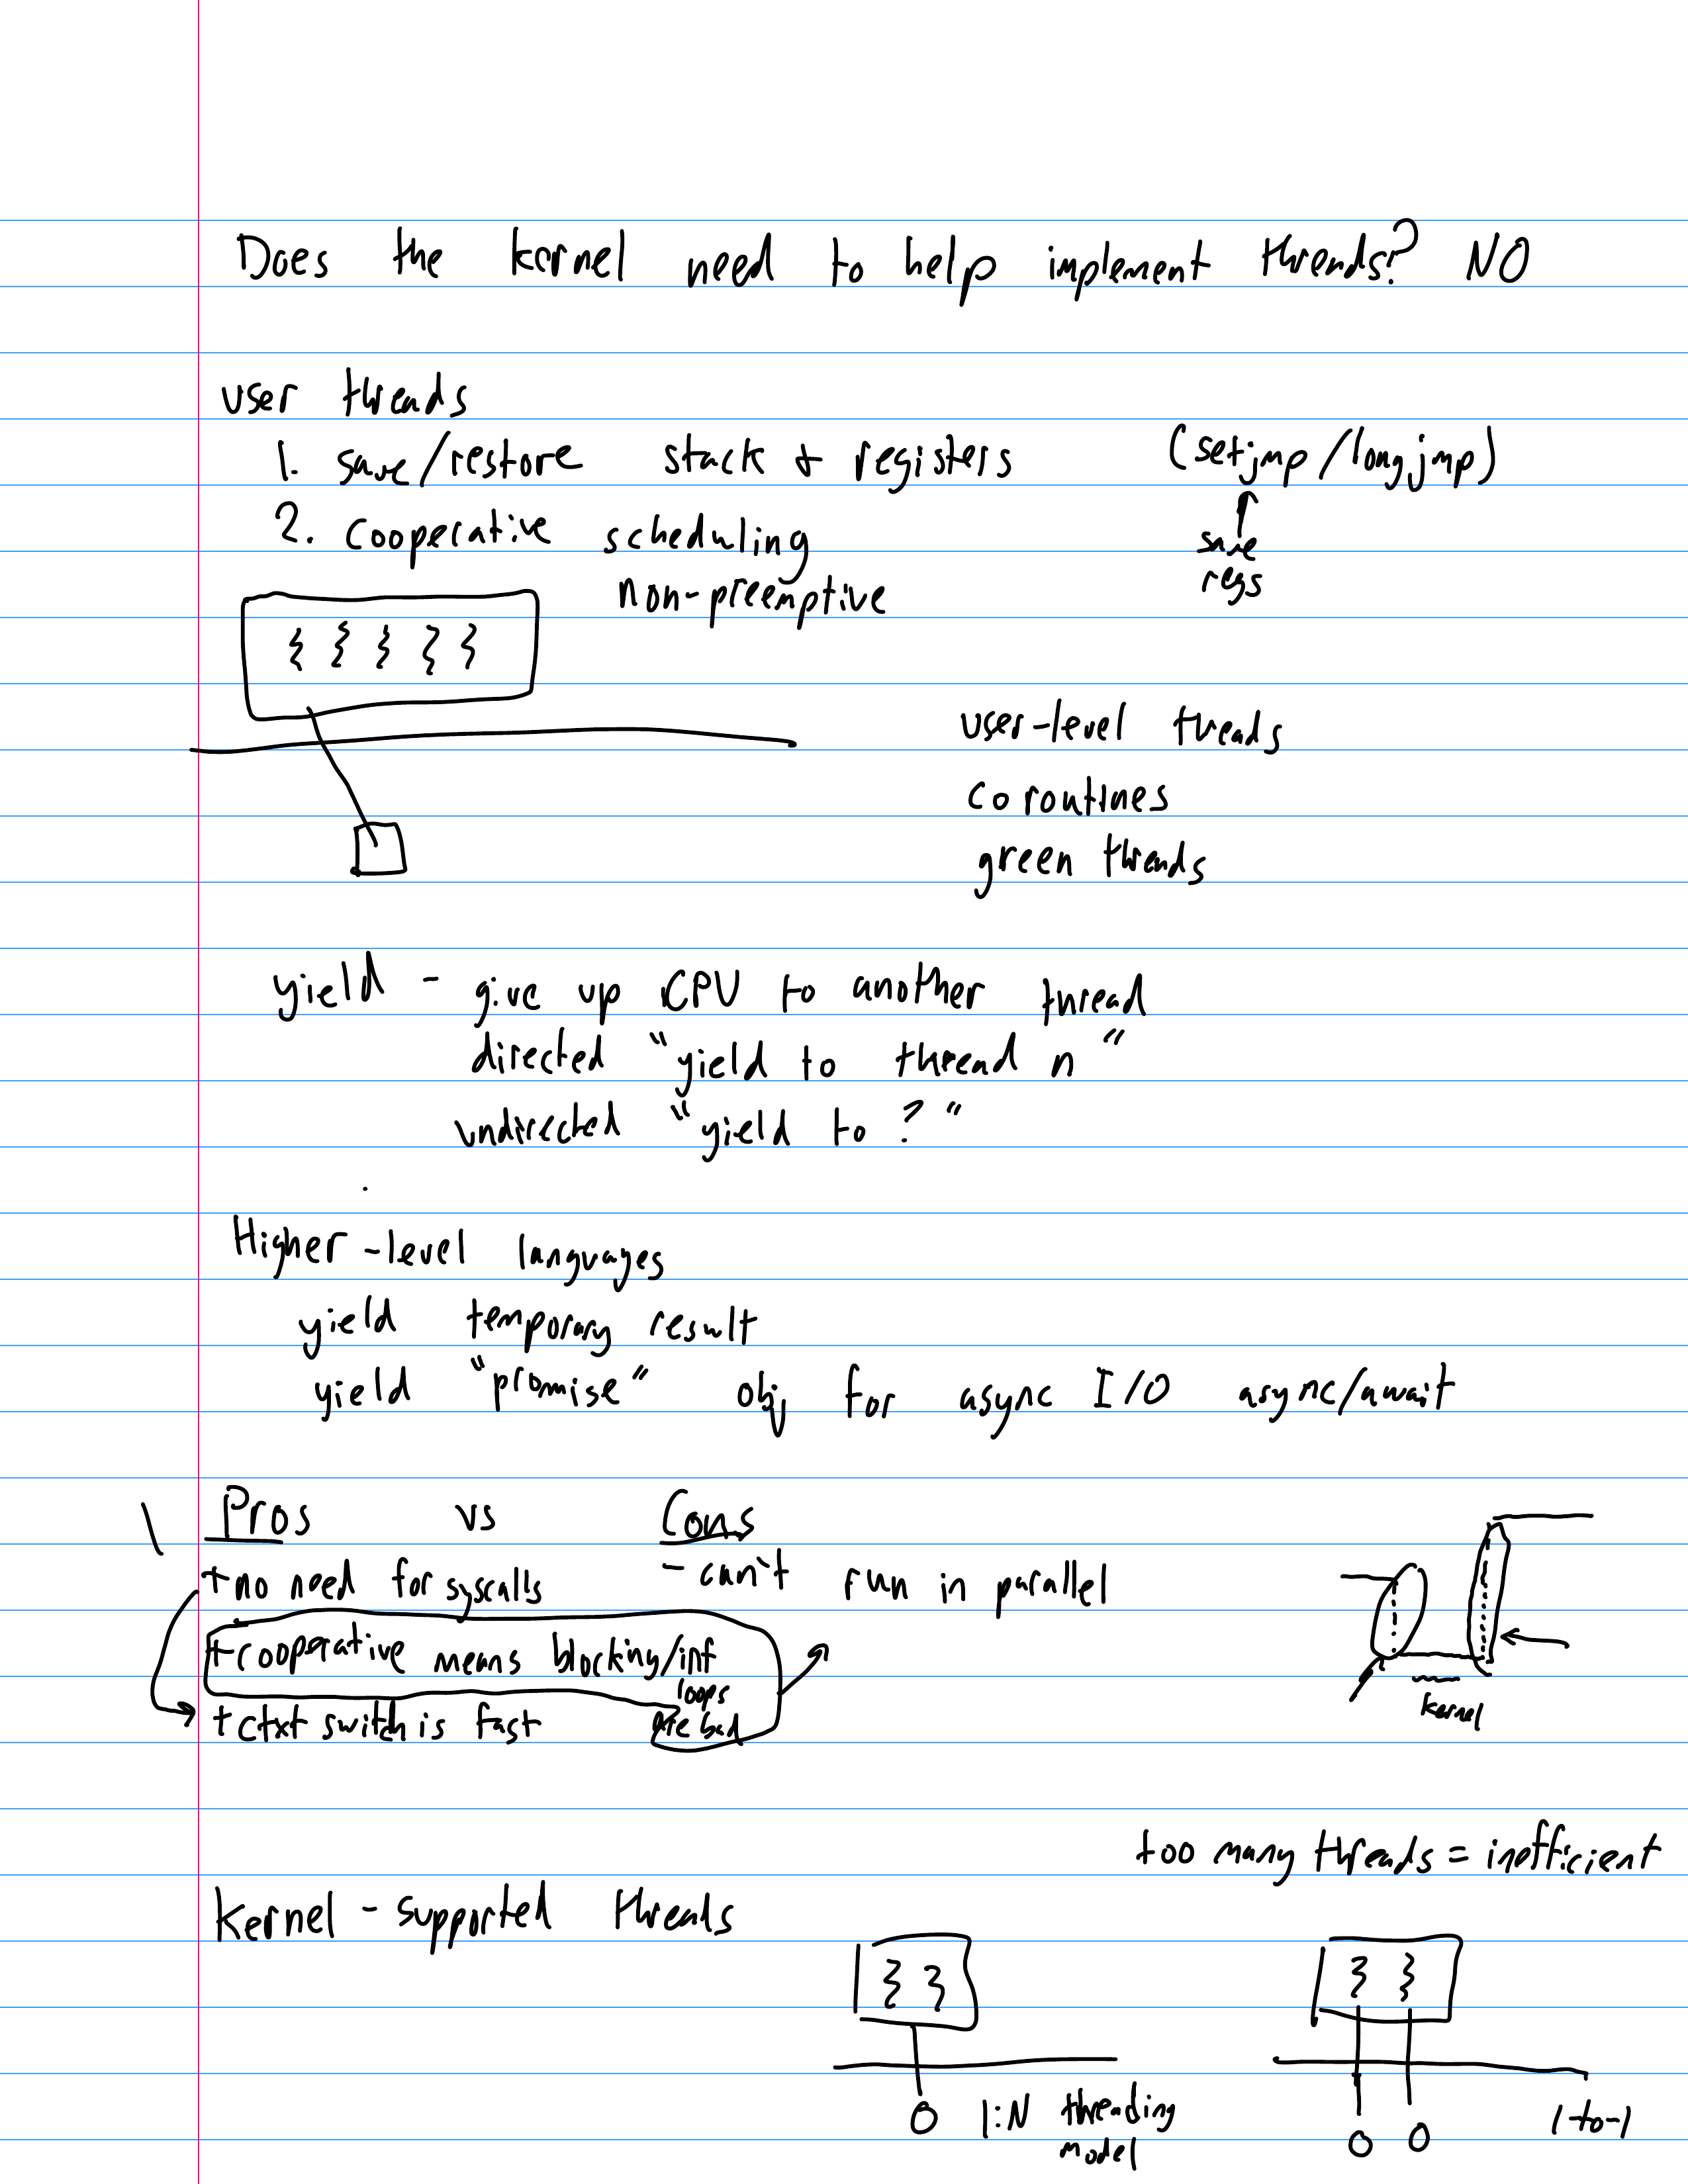 Does the kernel need to help implement threads? NO
user threads
1. save/restore stack + registers (setjmp/longjmp)
2. cooperative scheduling
save
regs
non-preemptive
user-level threads
coroutines
green threads
yield - give up CPU to another thread
directed "yield to thread n"
undirected "yield to ?"
Higher-level languages
yield temporary result
yield "promise" obj for async I/O async/await
Pros vs Cons
+ no need for syscalls - can't run in parallel
+ cooperative means blocking/inf
loops
are bad
+ ctxt switch is fast
kernel
too many threads = inefficient
kernel-supported threads
1:N threading
model
1-to-1